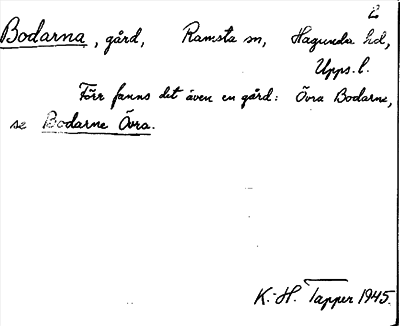 2
Bodarna, gård, Ramsta sn, Hagunda hd,
Upps. l.
Förr fanns det även en gård: Övra Bodarne,
se Bodarne Övra.
K.-H. Tapper 1945.